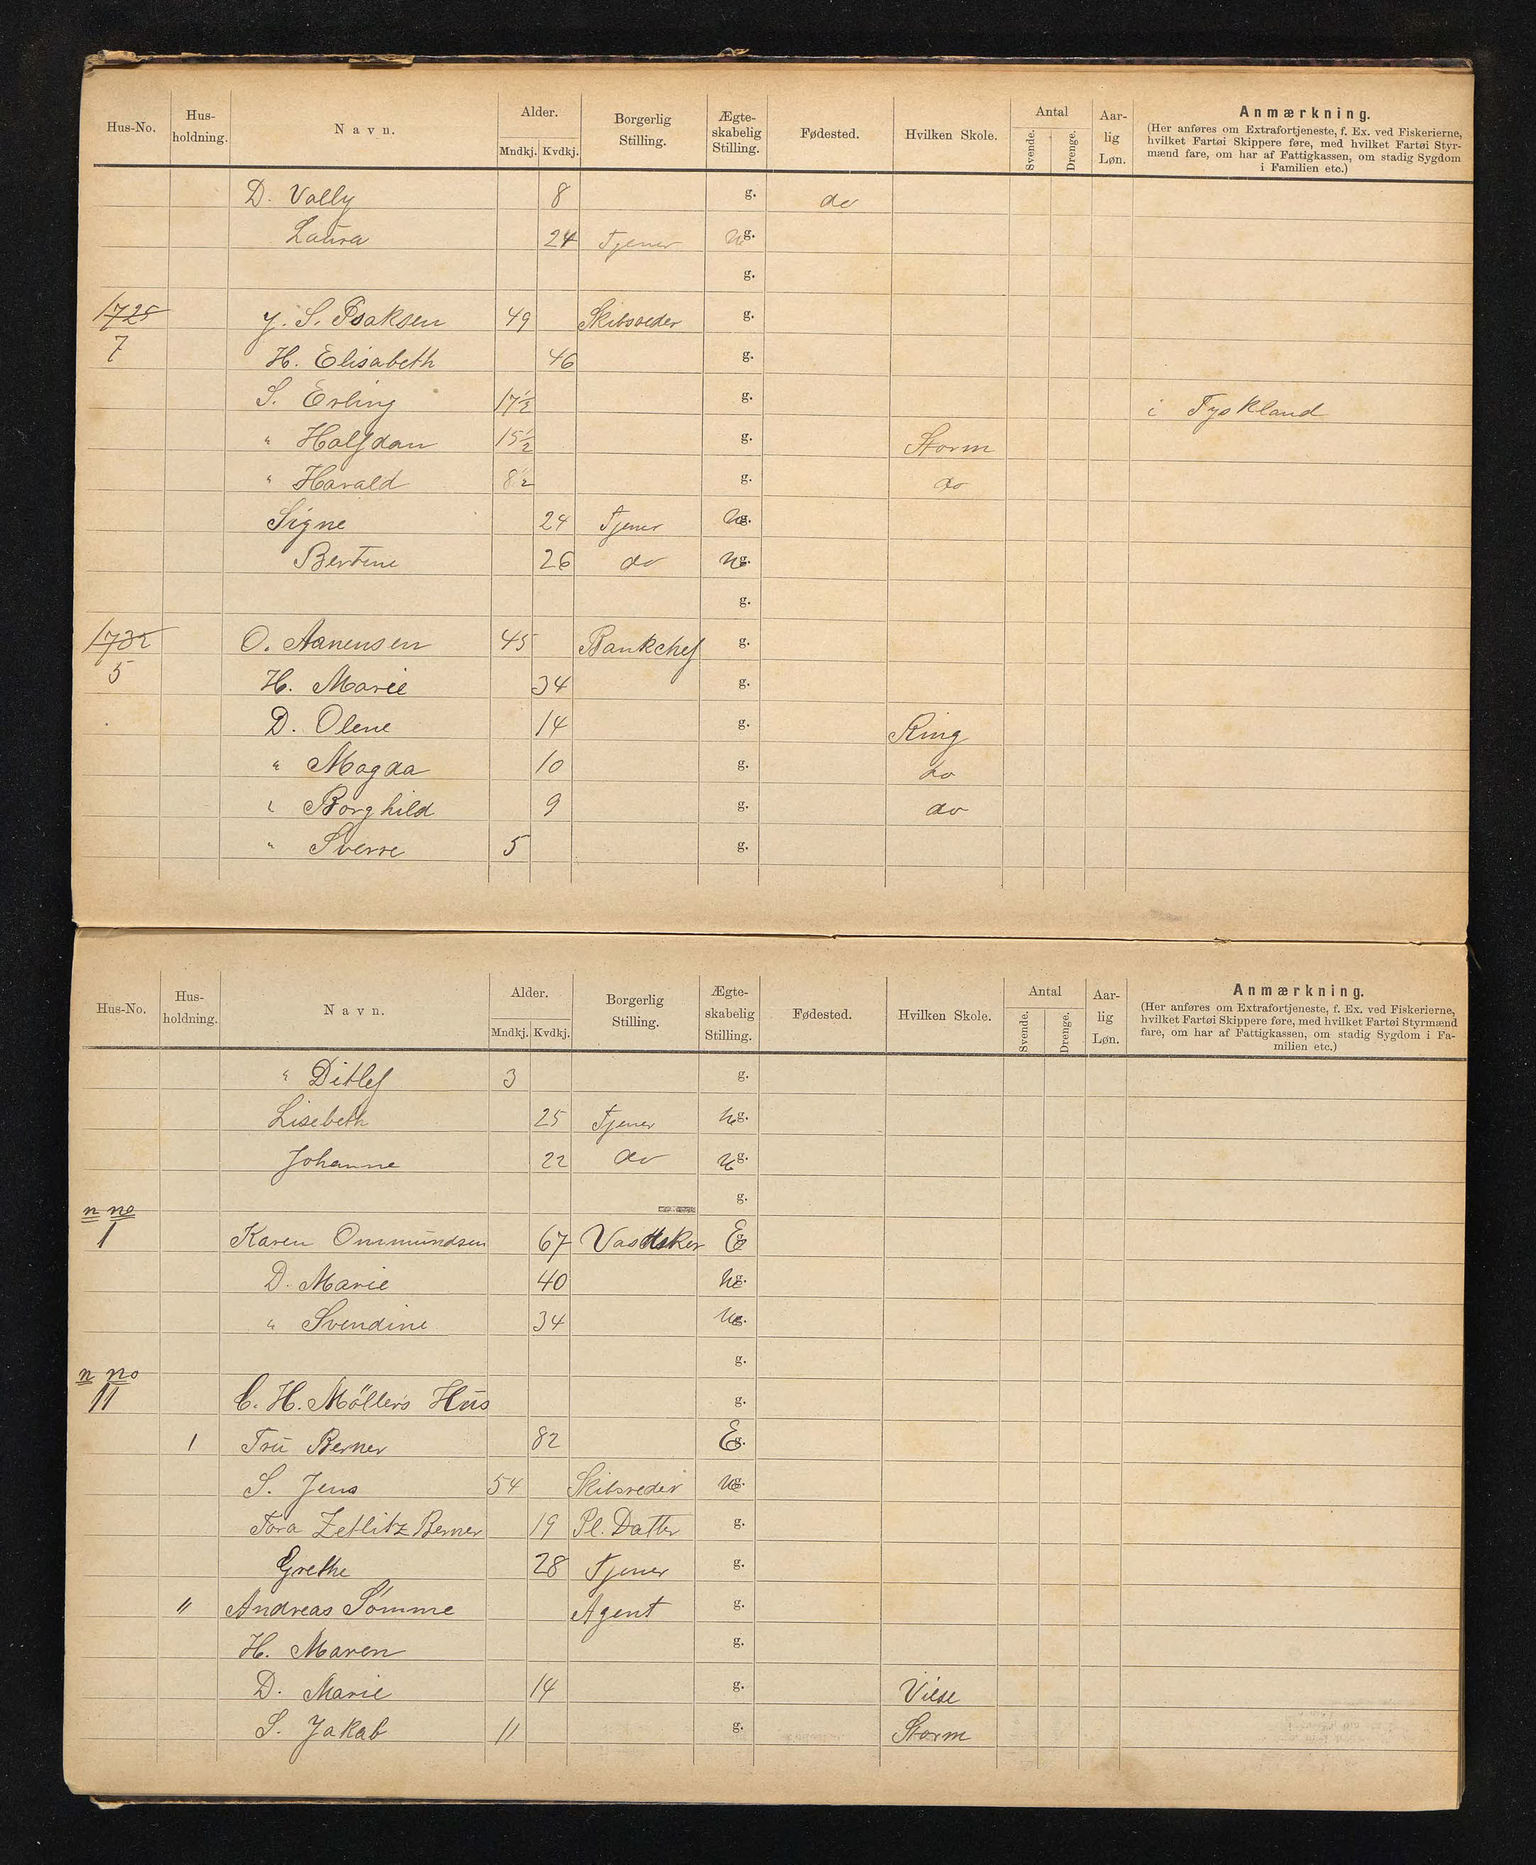 Hus-No. Hus-holdning. Navn. Alder. Mndkj. Kvdkj. Borgerlig Stilling. Ægte-skabelig Stilling. Fødested. Hvilken Skole. Antal Svende. Drenge. Aar-lig Løn. Anmærkning.
(Her anføres om Extrafortjeneste, f. Ex. ved Fiskerierne,
hvilket Fartøi Skippere føre, med hvilket Fartøi Styr-
mænd fare, om har af Fattigkassen, om stadig Sygdom
i Familien etc.)
D. Vally 8 g. do
Laura 24 Tjener U g.
g.
1725 J. S. Isaksen 49 Skibsreder g.
7 H. Elisabeth 46 g.
S. Erling 17½ g. i Tyskland
" Halfdan 15½ g. Storm
" Harald 8½ g. do
Signe 24 Tjener U g.
Bertine 26 do U g.
g.
1732 O. Aanensen 45 Bankchef g.
5 H. Marie 34 g.
D. Olene 14 g. Ring
" Magda 10 g. do
" Borghild 9 g. do
" Sverre 5 g.
Hus-No. Hus-holdning. Navn. Alder. Mndkj. Kvdkj. Borgerlig Stilling. Ægte-skabelig Stilling. Fødested. Hvilken Skole. Antal Svende. Drenge. Aar-lig Løn. Anmærkning.
(Her anføres om Extrafortjeneste, f. Ex. ved Fiskerierne,
hvilket Fartøi Skippere føre, med hvilket Fartøi Styrmænd
fare, om har af Fattigkassen, om stadig Sygdom i Fa-
milien etc.)
" Ditlef 3 g.
Lisebeth 25 Tjener U g.
Johanne 22 do U g.
n no g.
1 Karen Ommundsen 67 Vadsker E g.
D. Marie 40 U g.
" Svendine 34 U g.
n no g.
11 C. H. Möllers Hus g.
1 Fru Berner 82 E g.
S. Jens 54 Skibsreder U g.
Tora Zetlitz Berner 19 Pl. Datter g.
Grethe 28 Tjener g.
" Andreas Sømme Agent g.
H. Maren g.
D. Marie 14 g. Vilse
S. Jakab 11 g. Storm